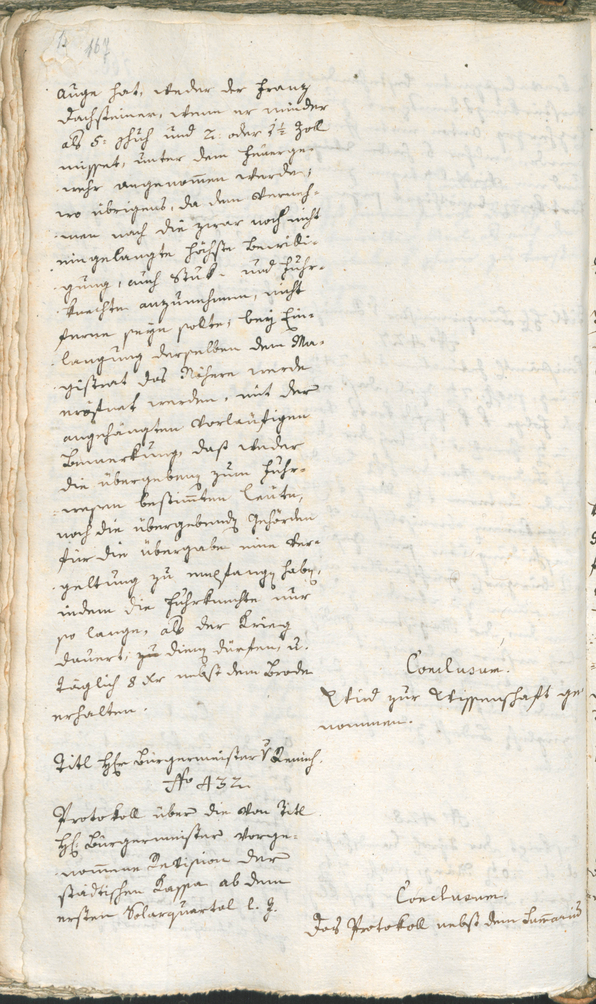 167
Auge hat, weder der Franz
Dachsteiner, wenn er minder
als 5: Schuh und 2: oder 1½ Zoll
misset, unter dem Feuerge-
wehr angenommen werde,
wo übrigens, da dem Verneh-
men nach die zwar noch nicht
eingelangte höchste Bewilli-
gung, auch Stuk- und Fuhr-
knechte anzunehmen, nicht
ferne seyn solte, bey Ein-
langung derselben dem Ma-
gistrat das Nähere werde
eröfnet werden, mit der
angehängten vorläufigen
Bemerkung, daß weder
die übergebene zum Fuhr-
wesen bestimten Leute,
noch die übergebende Behörden
für die Übergabe eine Ver-
geltung zu empfangen haben,
indem die Fuhrknechte nur
so lange, als der Krieg
dauert, zu dienen dürfen, u.
täglich 8 Xr nebst dem Brode
erhalten.
Conclusum.
Wird zur Wissenschaft ge
nommen.
Titl Hr Bürgermeister v
No 432
Protokoll über die von Titl
H: Bürgermeister vorge-
nommene Revision der
städtischen Kassa ab dem
ersten Solarquartal l. J.
Conclusum.
Das Protokoll nebst dem